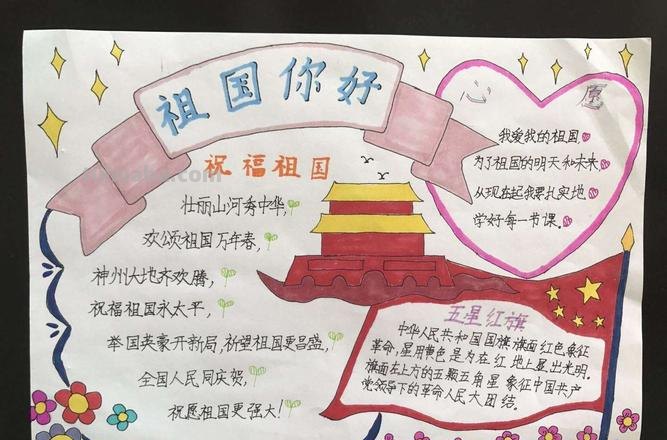 祖国你好
祝福祖国
壮丽山河秀中华,
欢颂祖国万年春,
神州大地齐欢腾,
祝福祖国永太平,
举国英豪开新局,祈望祖国更昌盛,
全国人民同庆贺,
祝愿祖国更强大!
心愿
我爱我的祖国
为了祖国的明天和未来
从现在起我要扎实地
学好每一节课.
五星红旗
中华人民共和国国旗旗面红色象征
革命,星用黄色是为在红地上显出光明.
旗面左上方的五颗五角星象征中国共产
党领导下的革命人民大团结.